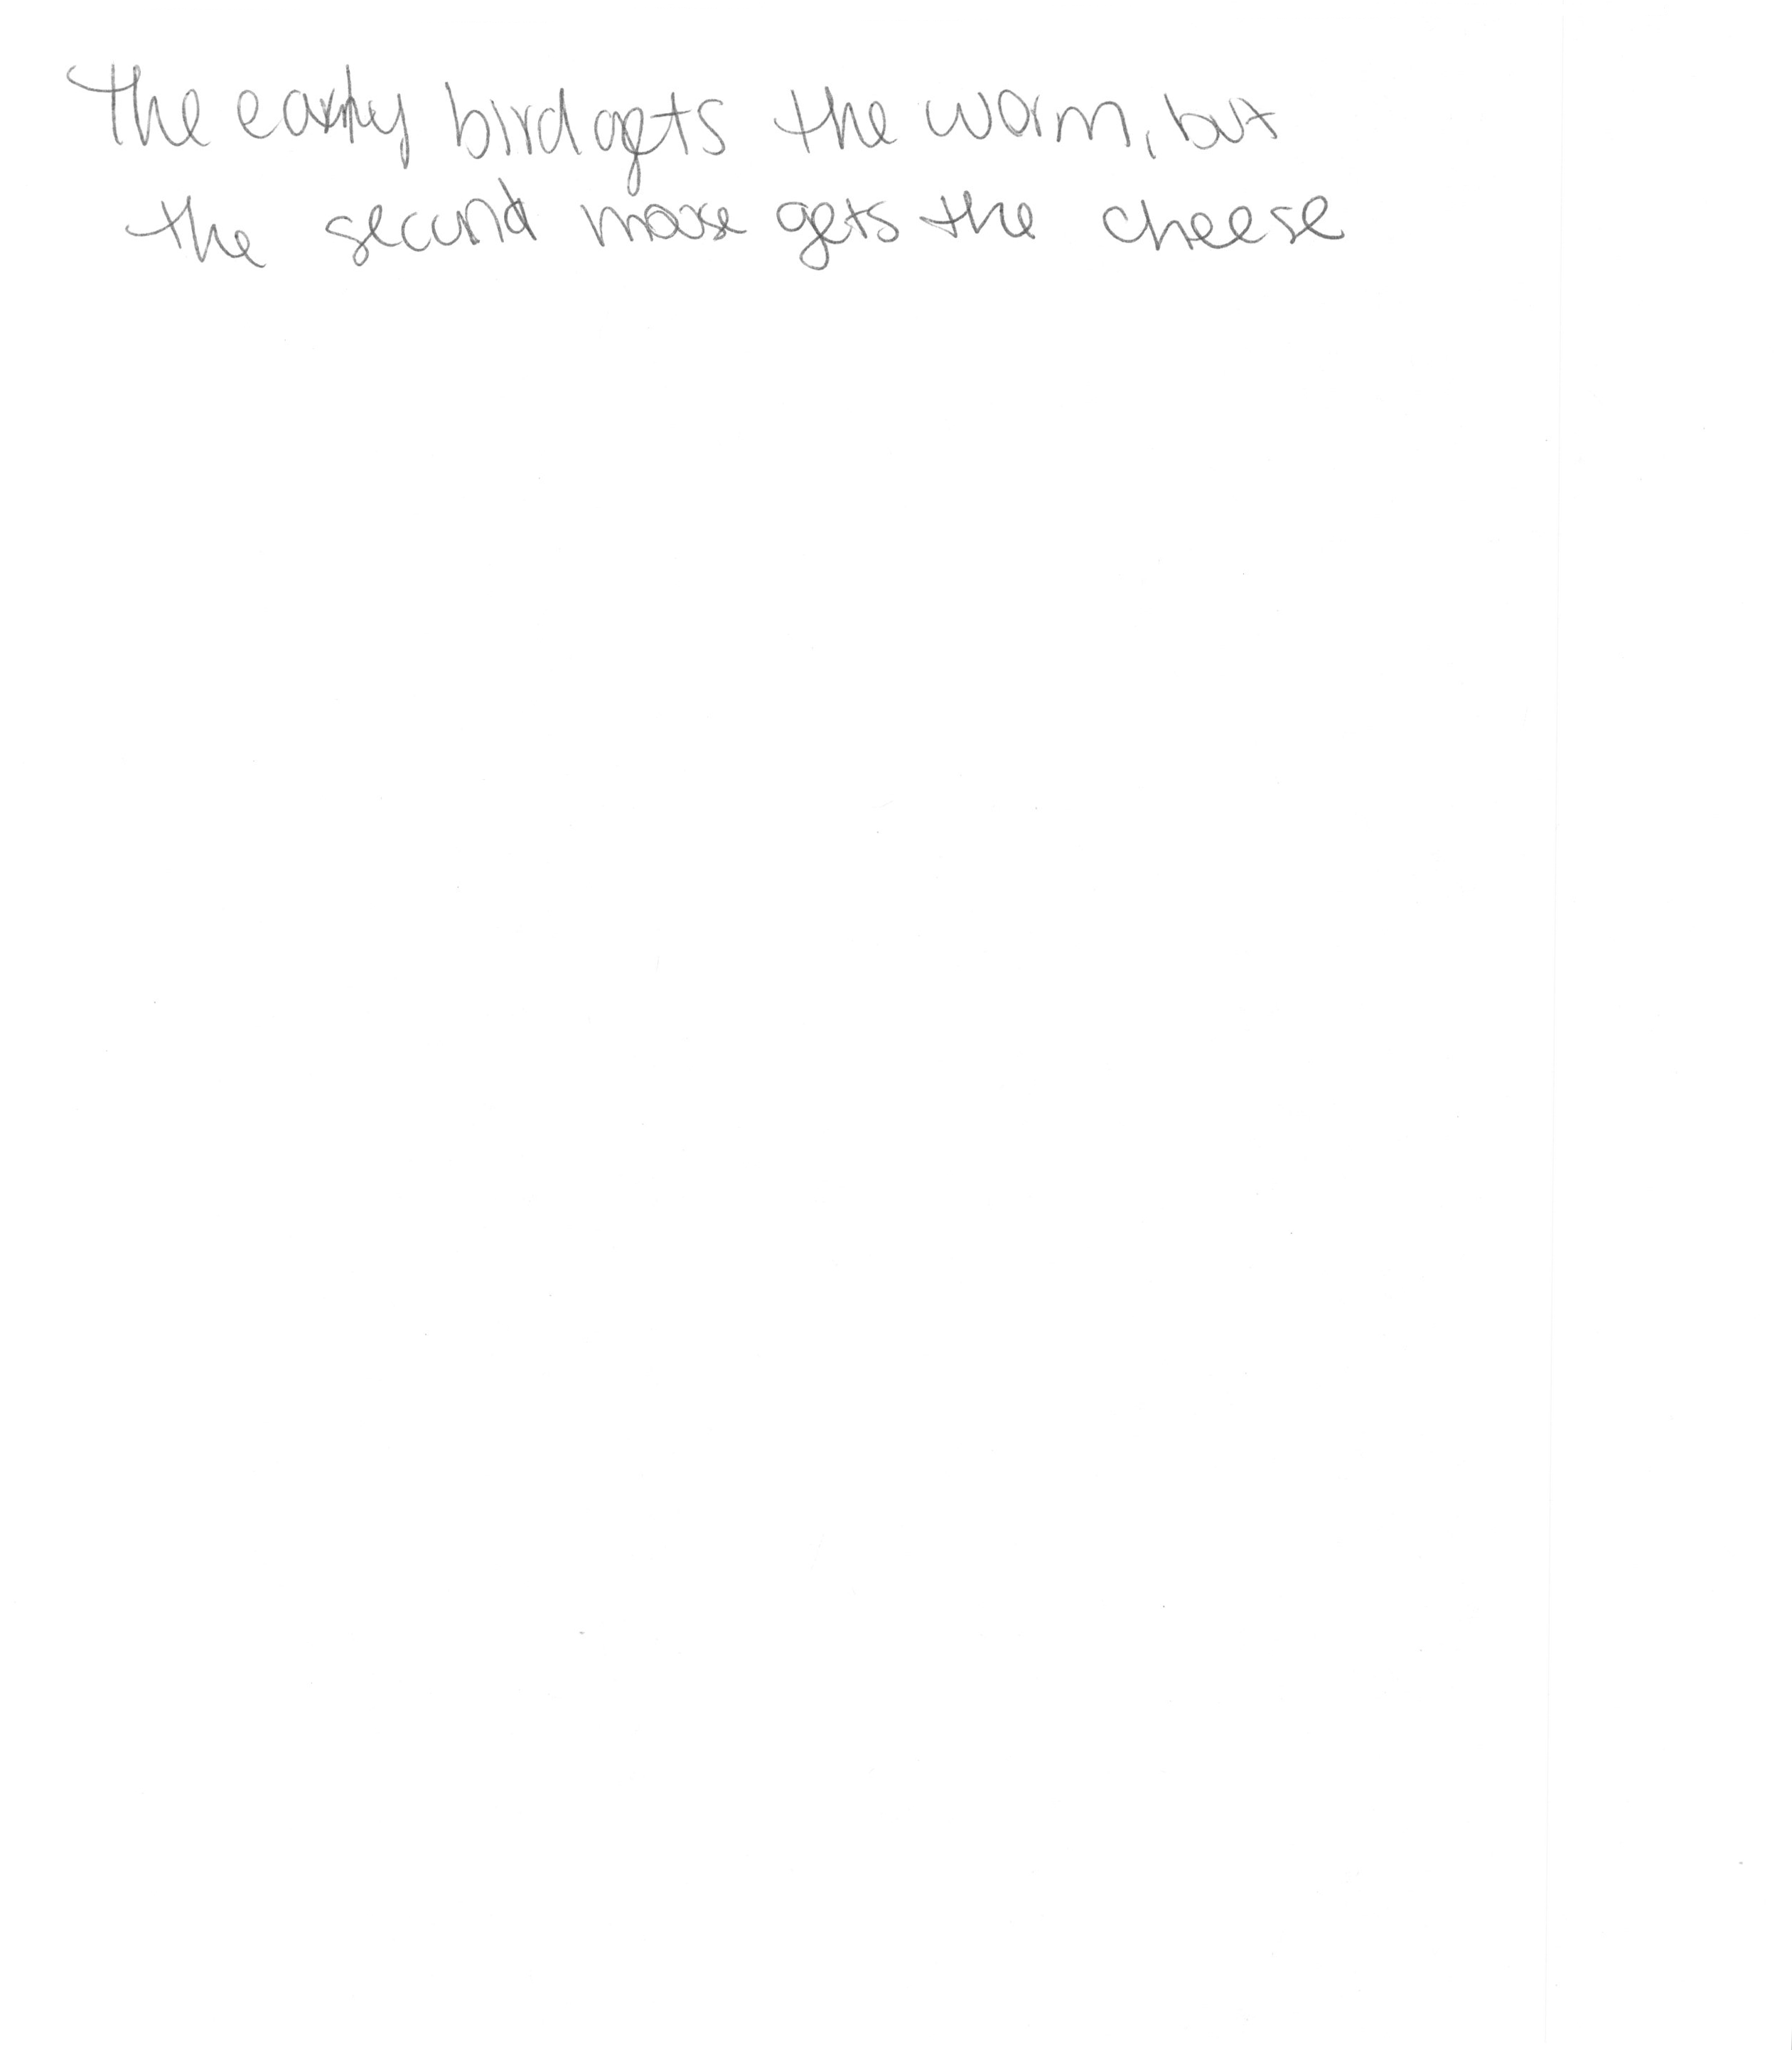 The early bird gets the worm, but
the second mouse gets the cheese